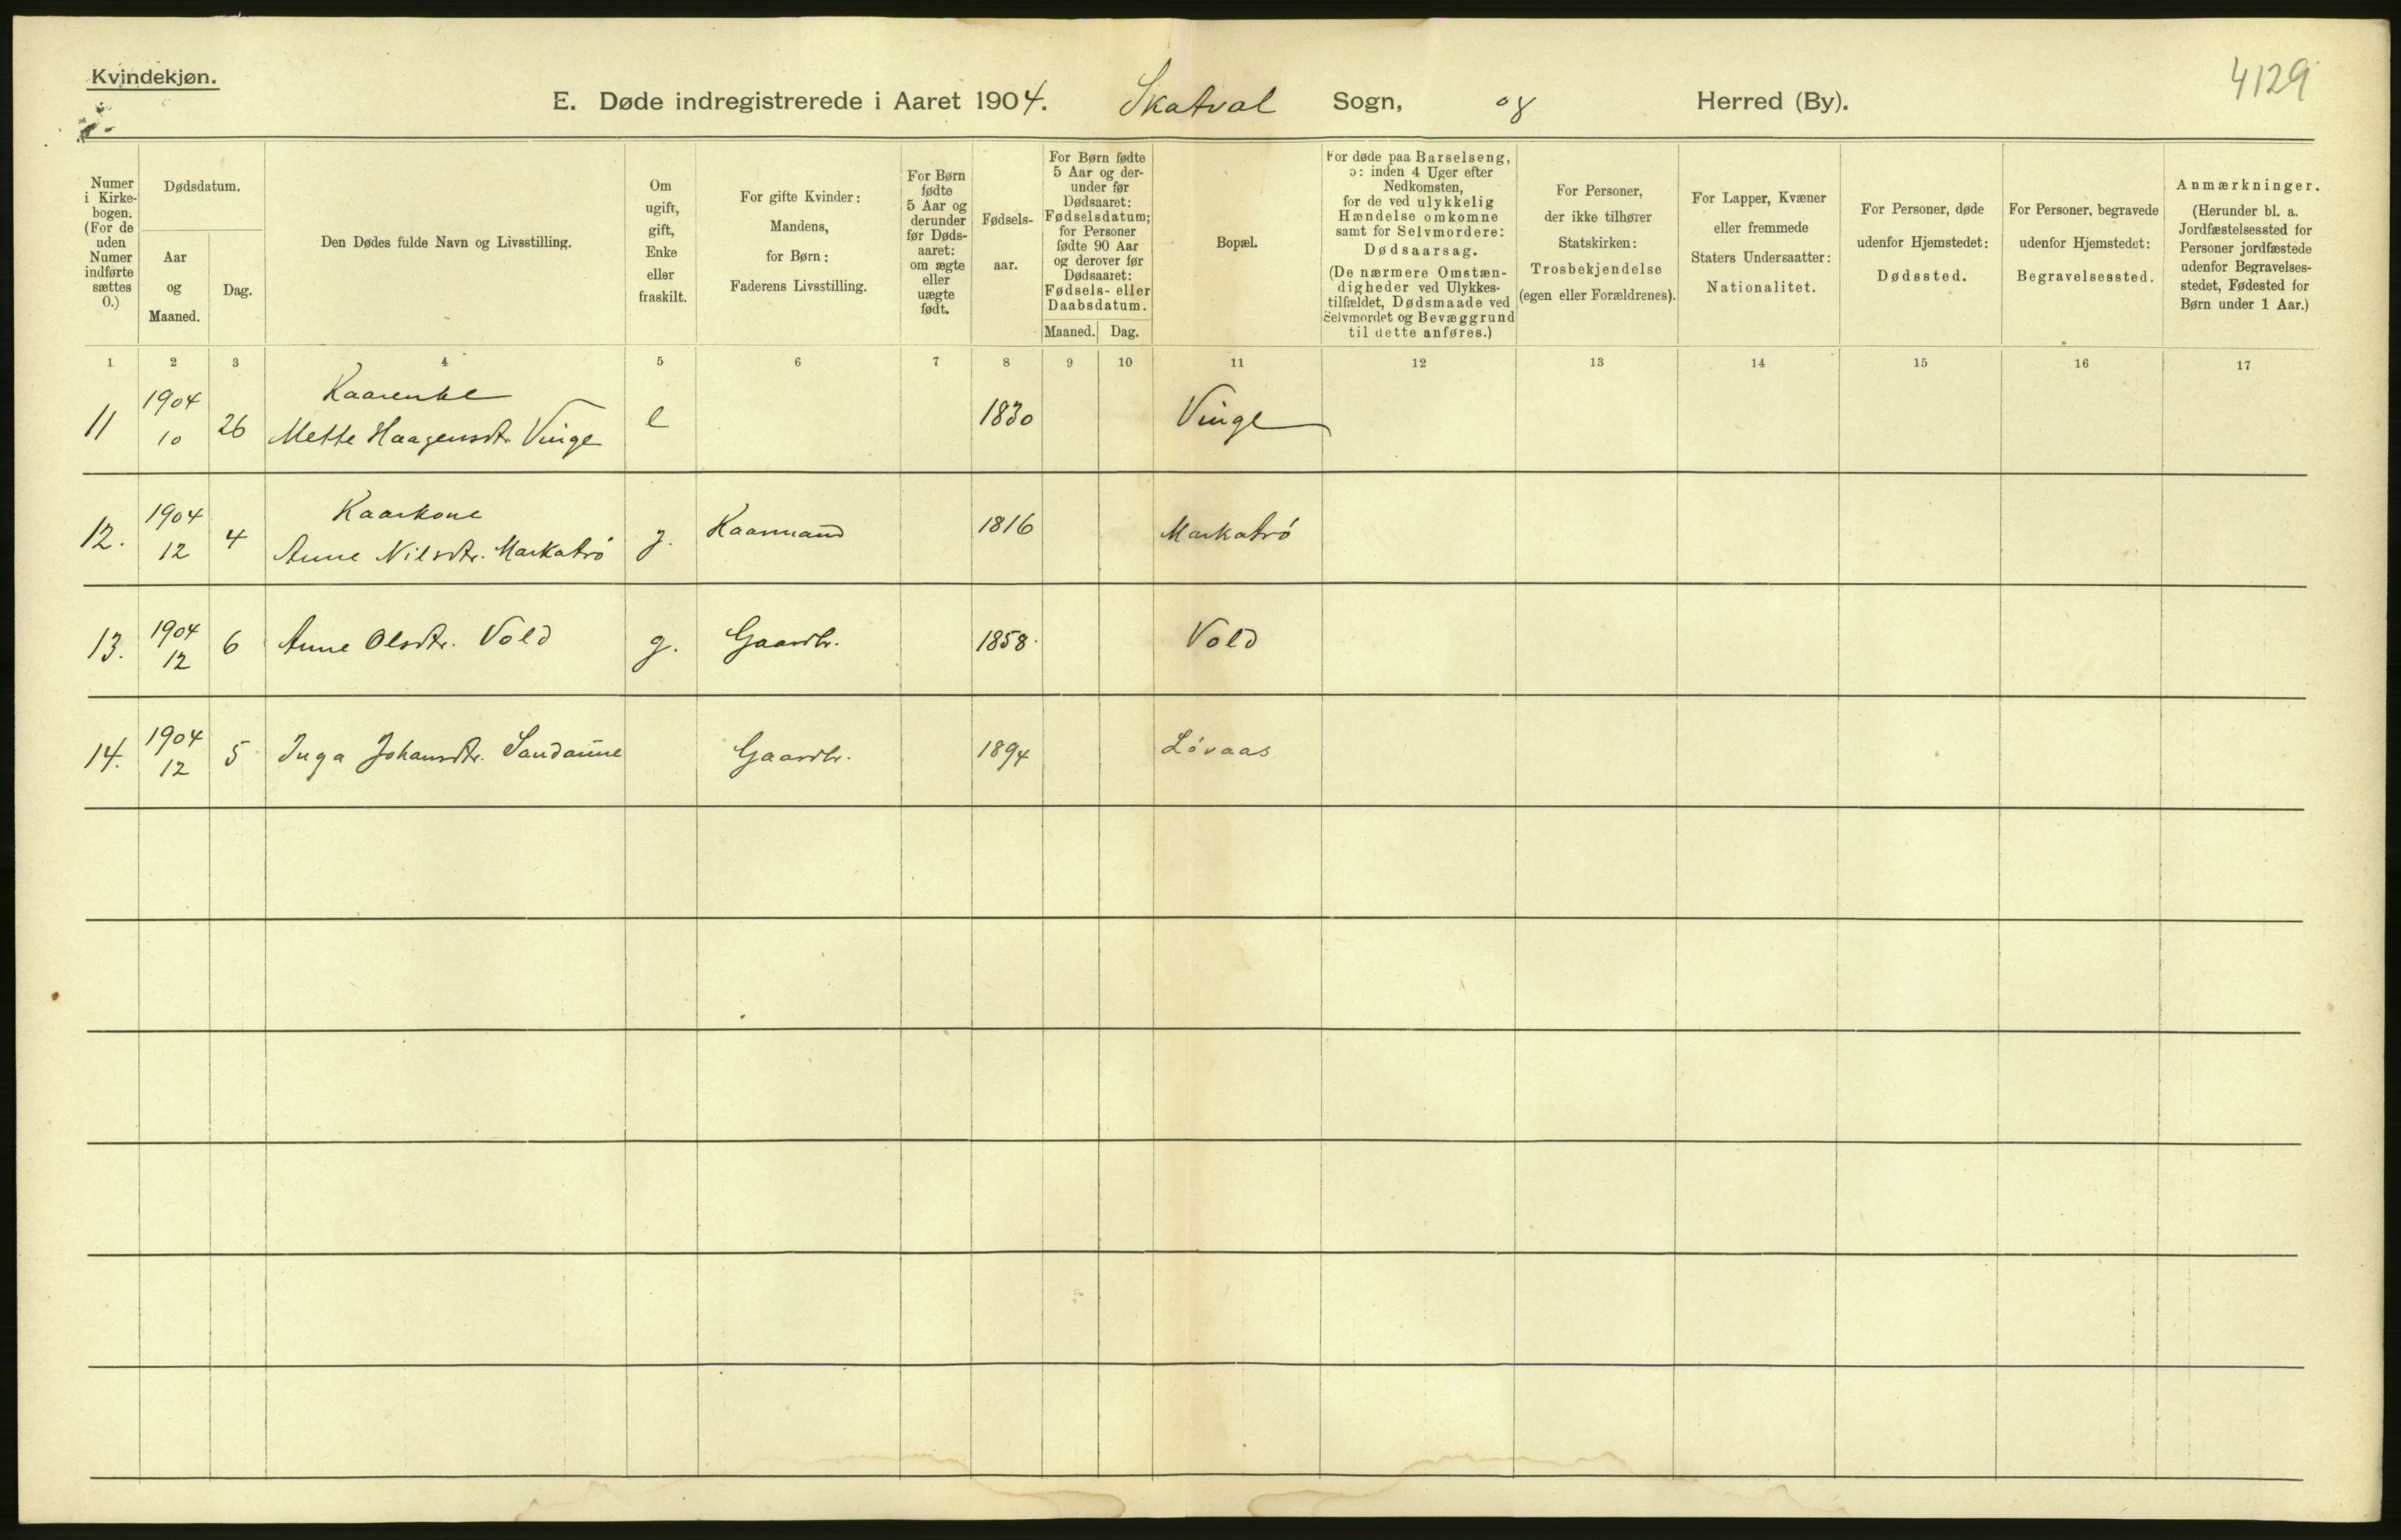 Kvindekjøn.
4129
E. Døde indregistrerede i Aaret 1904. Skatval Sogn, og Herred (By).
Numer i Kirkebogen. (For de uden Numer indførte sættes 0.)
Dødsdatum.
Aar og Maaned.
Dag.
Den Dødes fulde Navn og Livsstilling.
Om ugift, gift, Enke eller fraskilt.
For gifte Kvinder: Mandens, for Børn: Faderens Livsstilling.
For Børn fødte 5 Aar og derunder før Dødsaaret: om ægte eller uægte født.
Fødselsaar.
For Børn fødte 5 Aar og derunder før Dødsaaret: Fødselsdatum; for Personer fødte 90 Aar og derover før Dødsaaret: Fødsels- eller Daabsdatum.
Maaned. Dag.
Bopæl.
For døde paa Barselseng, ɔ: inden 4 Uger efter Nedkomsten, for de ved ulykkelig Hændelse omkomne samt for Selvmordere: Dødsaarsag. (De nærmere Omstændigheder ved Ulykkestilfældet, Dødsmaade ved Selvmordet og Bevæggrund til dette anføres.)
For Personer, der ikke tilhører Statskirken: Trosbekjendelse (egen eller Forældrenes).
For Lapper, Kvæner eller fremmede Staters Undersaatter: Nationalitet.
For Personer, døde udenfor Hjemstedet: Dødssted.
For Personer, begravede udenfor Hjemstedet: Begravelsessted.
Anmærkninger. (Herunder bl. a. Jordfæstelsessted for Personer jordfæstede udenfor Begravelsesstedet, Fødested for Børn under 1 Aar.)
1 2 3 4 5 6 7 8 9 10 11 12 13 14 15 16 17
11 1904 10 26 Kaarenke Mette Haagensdtr. Vinge e 1830 Vinge
12. 1904 12 4 Kaarkone Anne Nilsdtr. Markatrö g. Kaarmand 1816 Markatrö
13. 1904 12 6 Anne Olsdtr. Vold g. Gaardbr. 1858. Vold
14. 1904 12 5 Inga Johansdtr. Sandanne Gaardbr. 1894 Lövaas